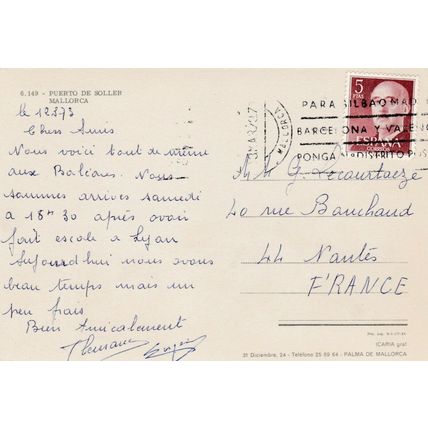 6.149 - PUERTO DE SOLLER
MALLORCA
le 12373
Chers Amis
Nous voici tout de même
aux Baléares. Nous
sommes arrivés samedi
a 18H30 après avoir
fait escale à Lyon
Aujourd'hui nous avons
beau temps mais un
peu frais
Bien Amicalement
MALLORCA
PARA BILBAO MAD
BARCELONA Y VALEN
PONGA Nº DISTRITO POS
5
PTAS
ESPAÑA
CORREOS
MM G.
40 rue Bouchaud
44 Nantes
FRANCE
ICARIA graf
31 Diciembre, 24 - Teléfono 25 89 64 - PALMA DE MALLORCA